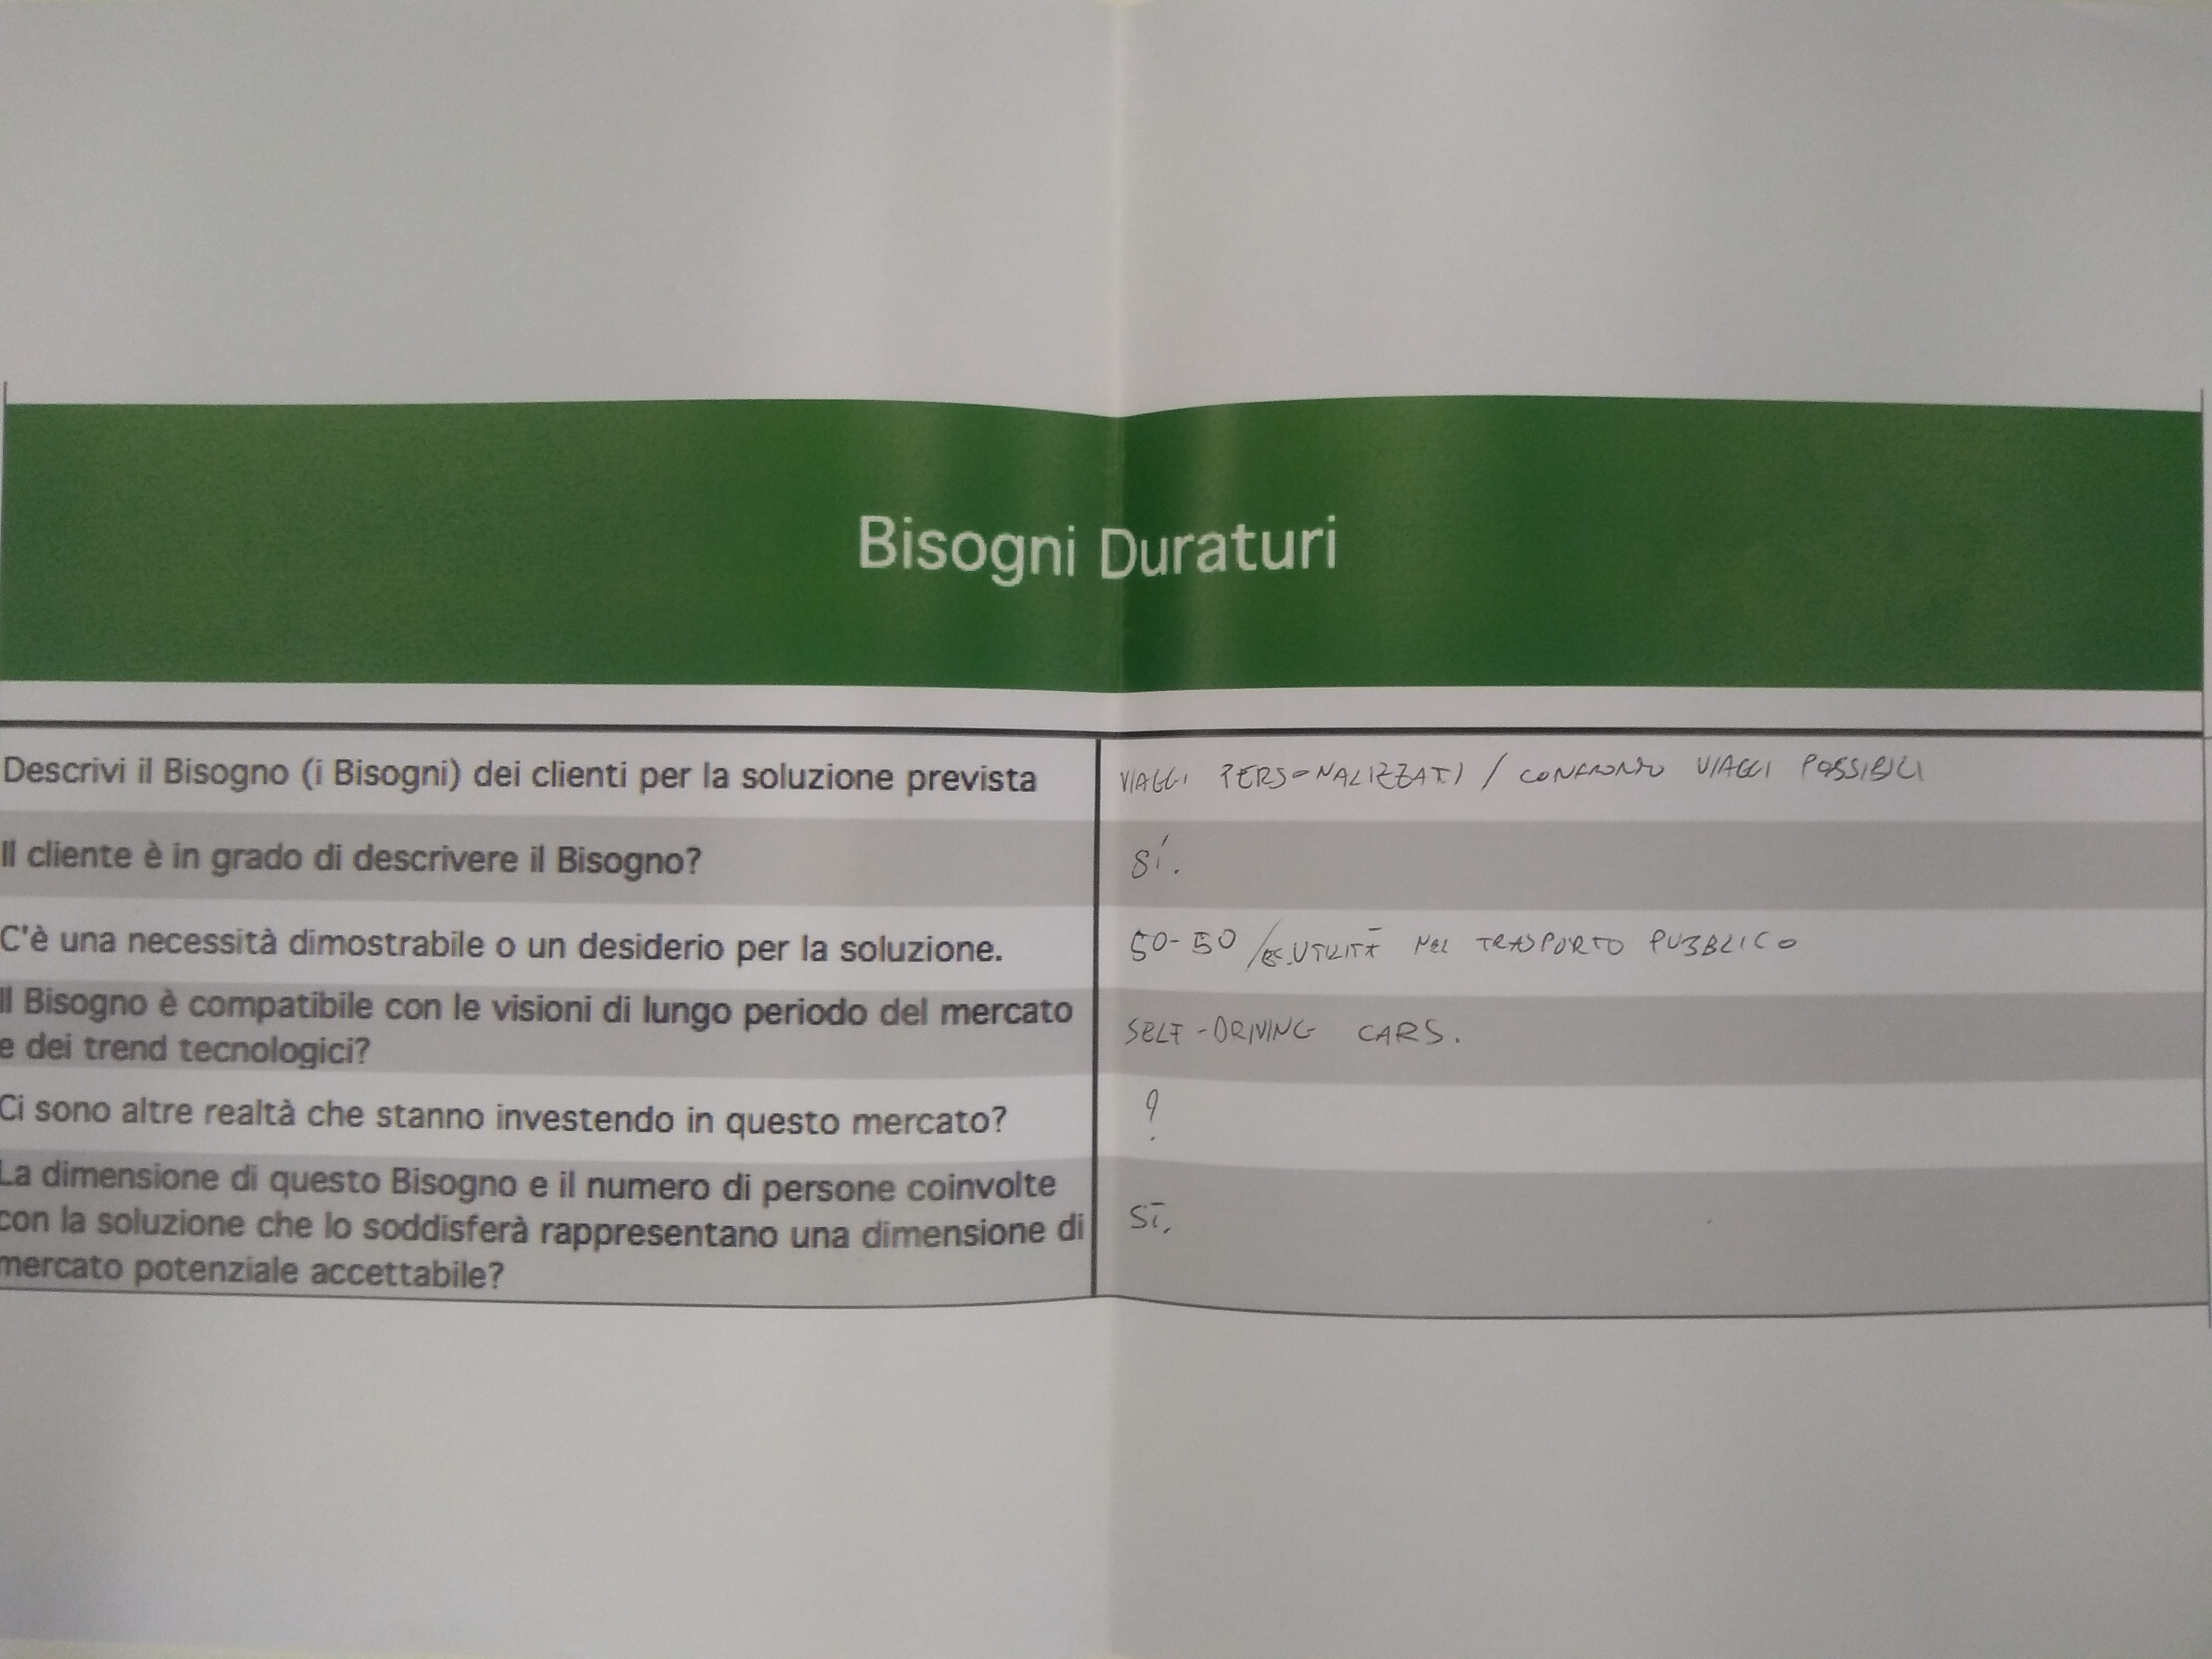 Bisogni Duraturi
Descrivi il Bisogno (i Bisogni) dei clienti per la soluzione prevista
VIAGGI PERSONALIZZATI / CONFRONTO VIAGGI POSSIBILI
Il cliente è in grado di descrivere il Bisogno?
SÍ.
C'è una necessità dimostrabile o un desiderio per la soluzione.
50-50 / ES. UTILITÀ NEL TRASPORTO PUBBLICO
Il Bisogno è compatibile con le visioni di lungo periodo del mercato
e dei trend tecnologici?
SELF-DRIVING CARS.
Ci sono altre realtà che stanno investendo in questo mercato?
?
La dimensione di questo Bisogno e il numero di persone coinvolte
con la soluzione che lo soddisferà rappresentano una dimensione di
mercato potenziale accettabile?
SÌ.